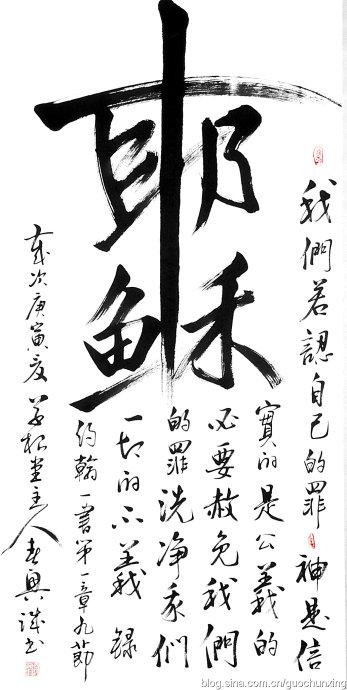 耶穌
我們若認自己的罪 神是信
實的是公義的
必要赦免我們
的罪洗净我們
一切的不義 錄
約翰一書第一章九節
歲次庚寅 堂主人春興 书
blog.sina.com.cn/guochunxing